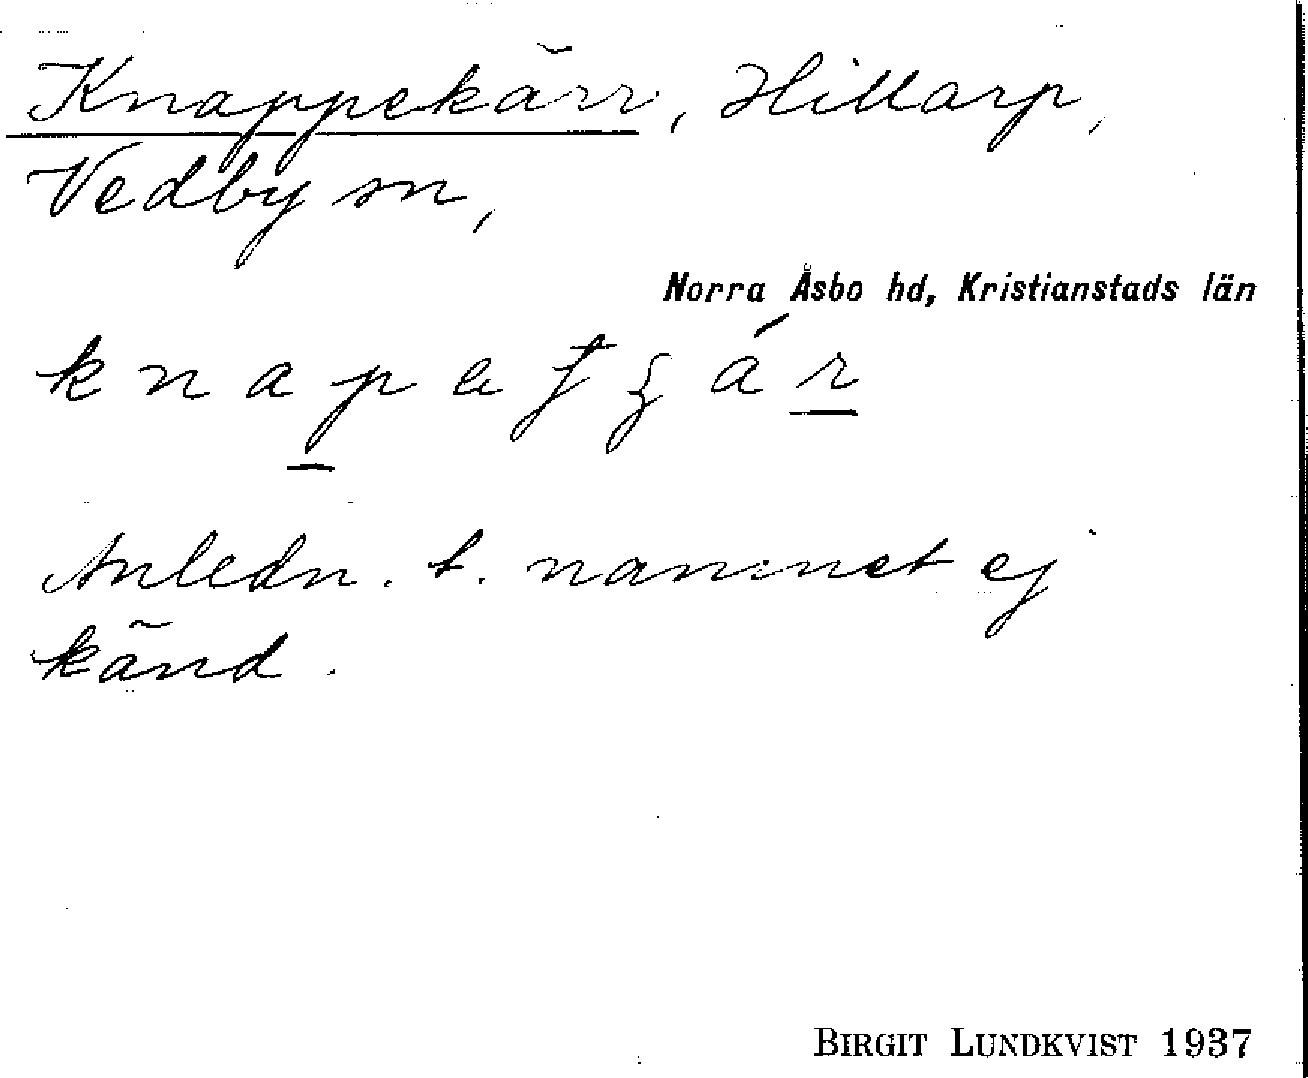 Knappekärr, Hillarp,
Vedby sn,
Norra Åsbo hd, Kristianstads län
Anledn. t. namnet ej
känd.
BIRGIT LUNDKVIST 1937